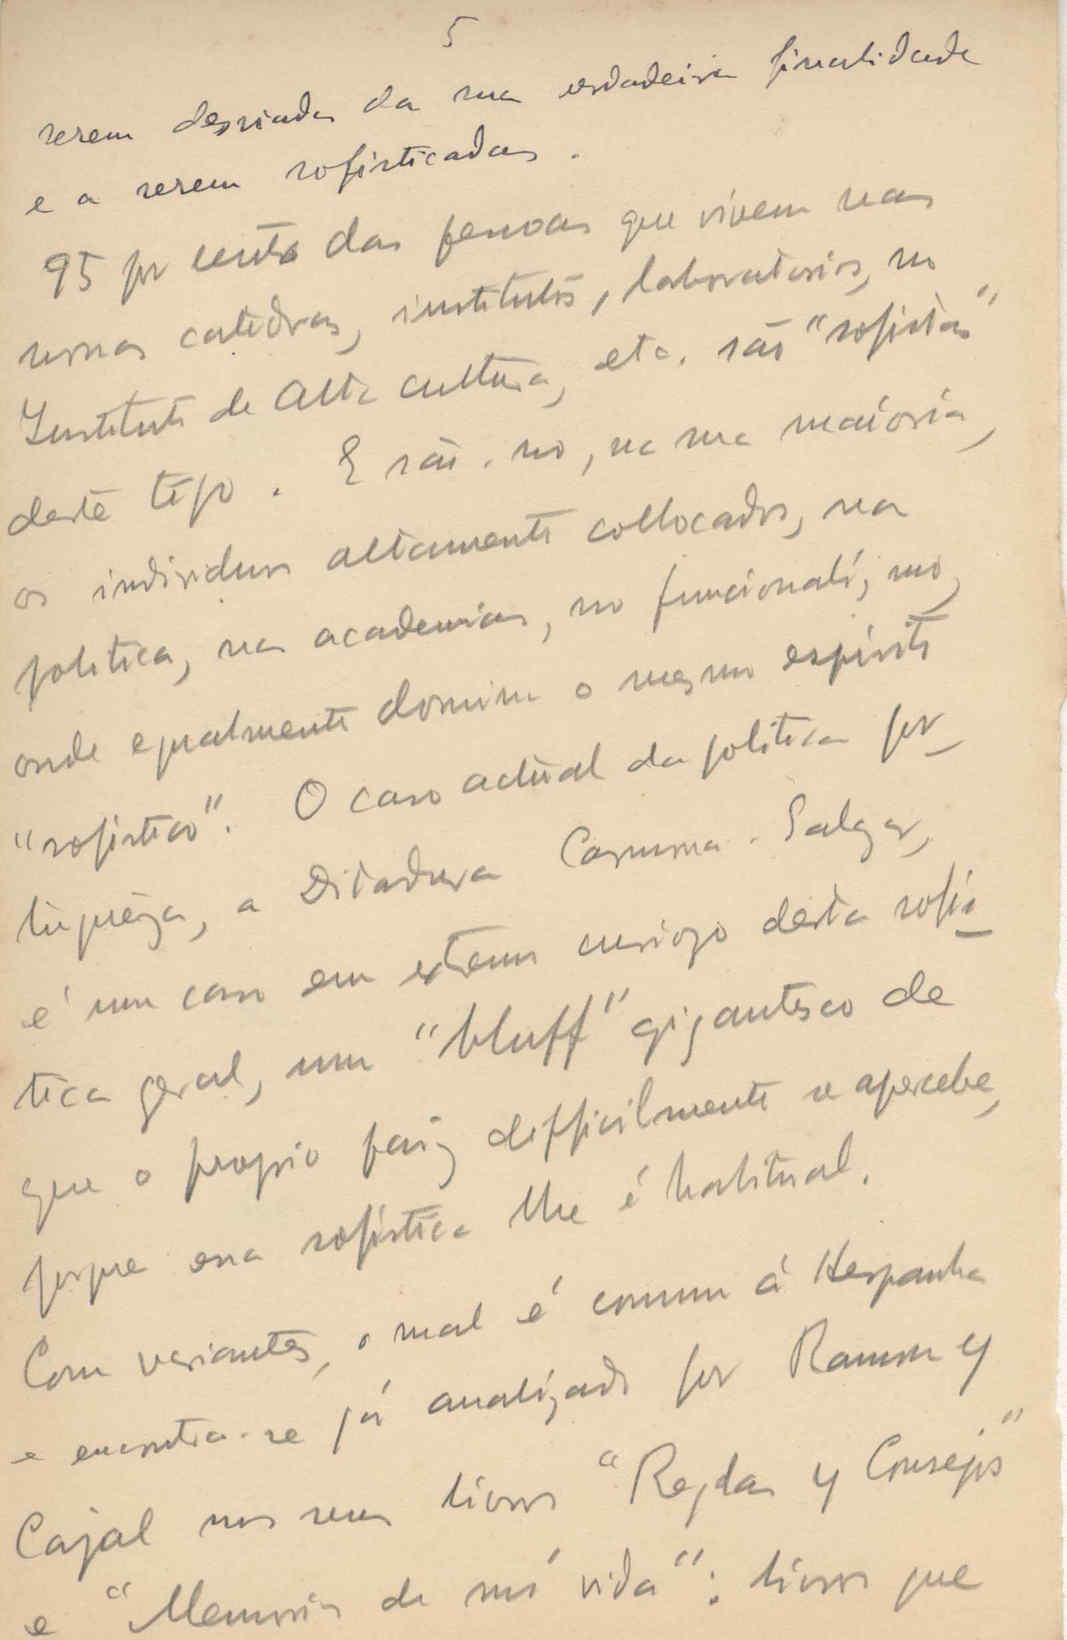 5
serem desviadas da sua verdadeira finalidade
e a serem sofisticadas.
95 por cento das pessoas que vivem nas
nossas catedras, institutos, laboratorios, no
Instituto de Alta Cultura, etc. são "sofistas"
deste tipo. E são-no, na sua maioria,
os individuos altamente collocados, na
politica, nas academias, no funcionalismo,
onde egualmente domina o mesmo espirito
"sofistico". O caso actual da politica por_
tuguêza, a Ditadura Carmona-Salazar,
é um caso em extremo curiozo desta sofis_
tica geral, um "bluff" gigantesco de
que o proprio paiz difficilmente se apercebe,
porque essa sofistica lhe é habitual.
Com variantes, o mal é commum á Hespanha
e encontra-se já analizado por Ramon y
Cajal nos seus livros "Reglas y Consejos"
e "Memorias de mi vida"; livros que